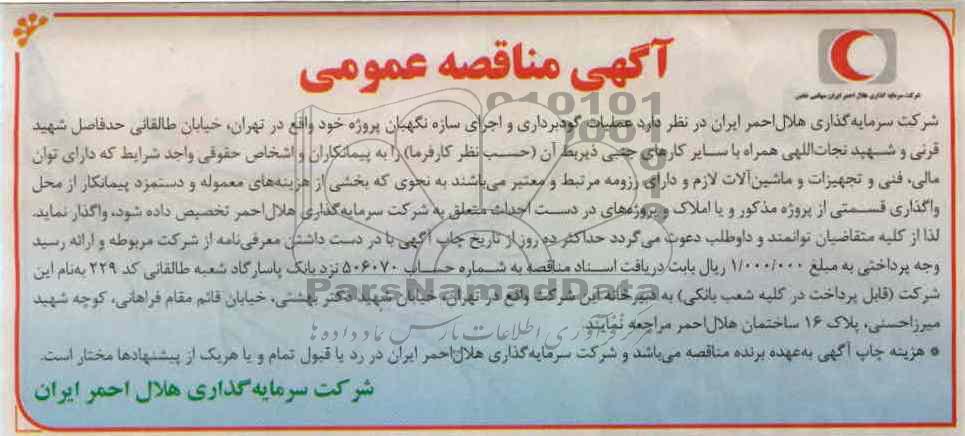 آگهی مناقصه عمومی
شرکت سرمایه گذاری هلال احمر ایران سهامی خاص
شرکت سرمایه‌گذاری هلال‌احمر ایران در نظر دارد عملیات گودبرداری و اجرای سازه نگهبان پروژه خود واقع در تهران، خیابان طالقانی حدفاصل شهید
قرنی و شهید نجات‌اللهی همراه با سایر کارهای جنبی ذیربط آن (حسب نظر کارفرما) را به پیمانکاران و اشخاص حقوقی واجد شرایط که دارای توان
مالی، فنی و تجهیزات و ماشین‌آلات لازم و دارای رزومه مرتبط و معتبر می‌باشند به نحوی که بخشی از هزینه‌های معموله و دستمزد پیمانکار از محل
واگذاری قسمتی از پروژه مذکور و یا املاک و پروژه‌های در دست احداث متعلق به شرکت سرمایه‌گذاری هلال‌احمر تخصیص داده شود، واگذار نماید.
لذا از کلیه متقاضیان توانمند و داوطلب دعوت می‌گردد حداکثر ده روز از تاریخ چاپ آگهی با در دست داشتن معرفی‌نامه از شرکت مربوطه و ارائه رسید
وجه پرداختی به مبلغ ۱/۰۰۰/۰۰۰ ریال بابت دریافت اسناد مناقصه به شماره حساب ۵۰۶۰۷۰ نزد بانک پاسارگاد شعبه طالقانی کد ۲۲۹ به‌نام این
شرکت (قابل پرداخت در کلیه شعب بانکی) به دبیرخانه این شرکت واقع در تهران، خیابان شهید دکتر بهشتی، خیابان قائم مقام فراهانی، کوچه شهید
میرزاحسنی، پلاک ۱۶ ساختمان هلال‌احمر مراجعه نمایند.
* هزینه چاپ آگهی به‌عهده برنده مناقصه می‌باشد و شرکت سرمایه‌گذاری هلال‌احمر ایران در رد یا قبول تمام و یا هریک از پیشنهادها مختار است.
شرکت سرمایه‌گذاری هلال احمر ایران
ParsNamadData
مرکز فرآوری اطلاعات پارس نماد داده ها